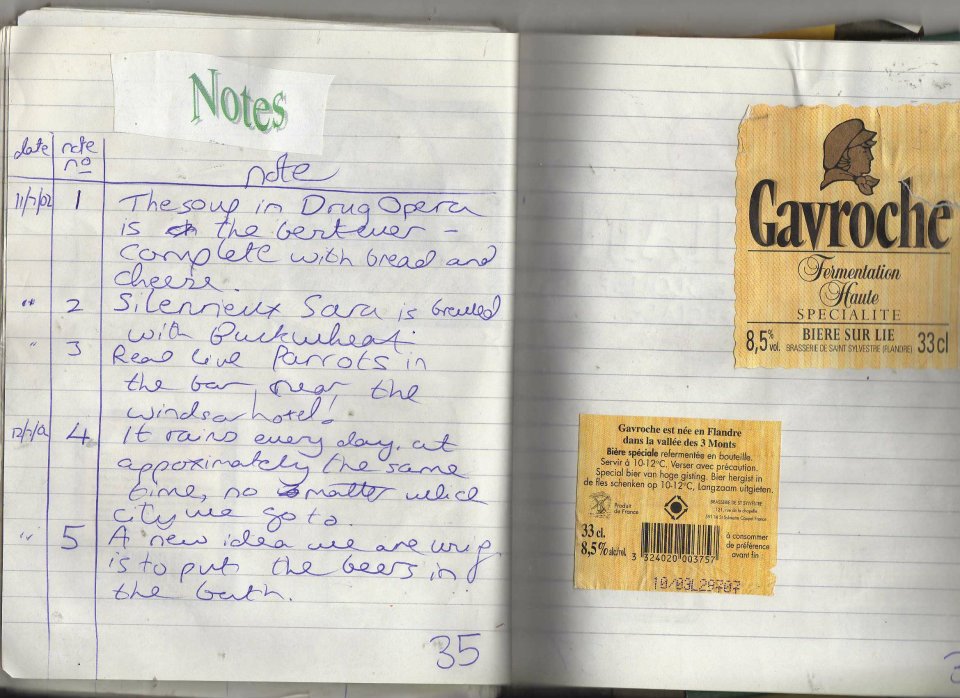 Notes
date note no note
11/7/02 1 The soup in Drug Opera
is the best ever -
complete with bread and
cheese.
" 2 Silenrieux Sara is brewed
with Buckwheat.
" 3 Real live Parrots in
the bar near the
windsar hotel!
4 It rains every day. at
appoximately the same
time, no matter which
city we go to.
" 5 A new idea we are
is to put the beers in
the bath.
35
Gavroche
Fermentation
Haute
SPECIALITE
8,5% vol. BIERE SUR LIE 33 cl
BRASSERIE DE SAINT SYLVESTRE (FLANDRE)
Gavroche est née en Flandre
dans la vallée des 3 Monts
Bière spéciale refermentée en bouteille.
Servir à 10-12°C. Verser avec précaution.
Special bier van hoge gisting. Bier hergist in
de fles schenken op 10-12°C, Langzaam uitgieten.
Produit
de France
BRASSERIE DE ST SYLVESTRE
121, rue de la chapelle
33 cl.
8,5% alc/vol.
à consommer
de préférence
avant fin
3 324020 003757